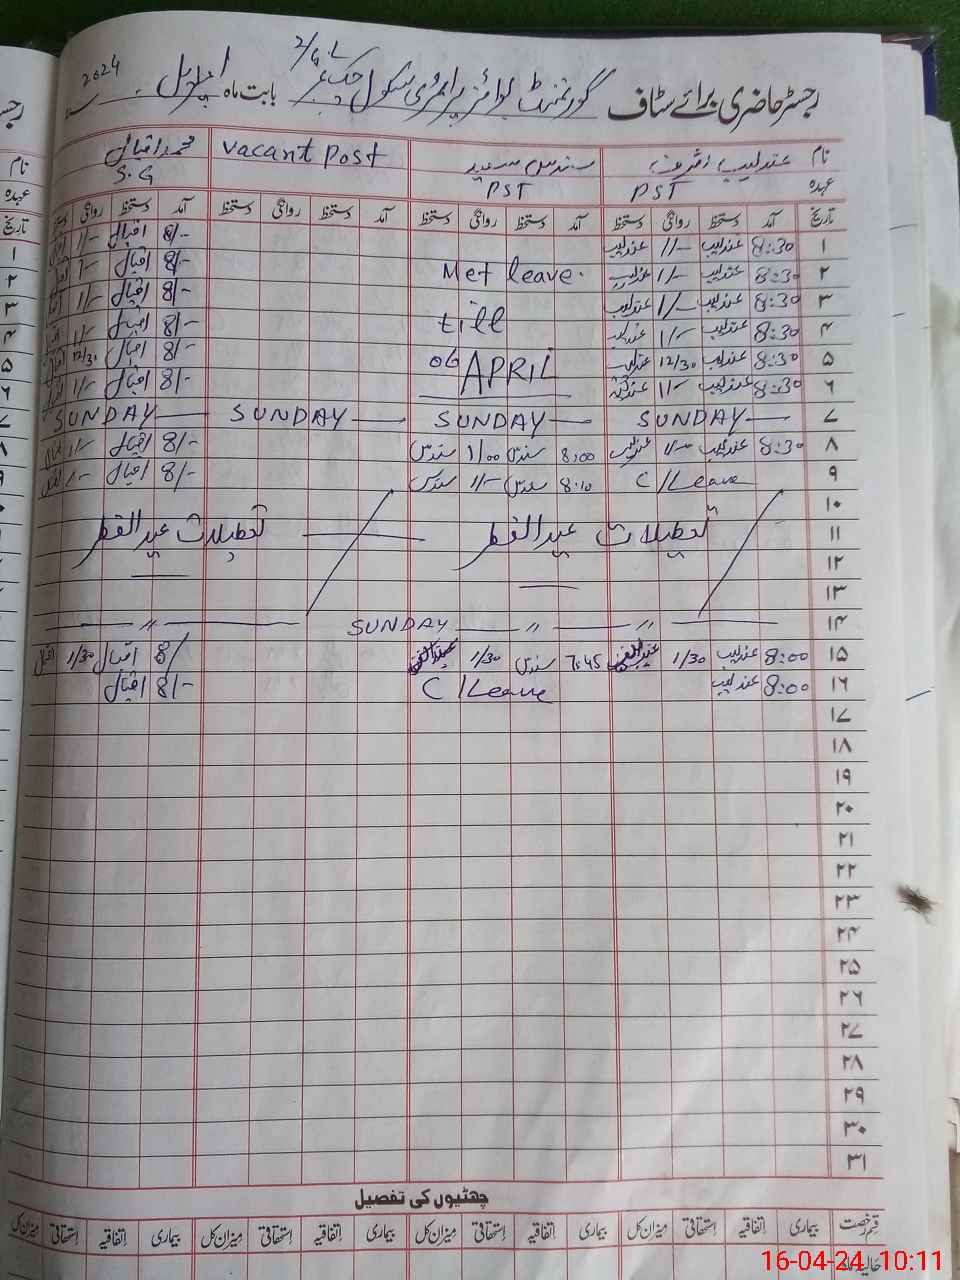 2/4.L
رجسٹر حاضری برائے سٹاف گورنمنٹ بوائز پرائمری سکول چک نمبر بابت ماہ اپریل 2024ء
نام عندلیب اشرف سندس سعید Vacant Post محمد اقبال
عہدہ PST PST S.G
تاریخ آمد دستخط روانگی دستخط آمد دستخط روانگی دستخط آمد دستخط روانگی دستخط آمد دستخط روانگی
۱ 8:30 عندلیب 1/- عندلیب 8/- اقبال 1/-
۲ 8:30 عندلیب 1/- عندلیب Met leave. 8/- اقبال 1/-
۳ 8:30 عندلیب 1/- عندلیب till 8/- اقبال 1/-
۴ 8:30 عندلیب 1/- 8/- اقبال 1/-
۵ 8:30 عندلیب 12/30 عندلیب 06 APRIL 8/- اقبال 12/30
۶ 8:30 عندلیب 1/- 8/- اقبال 1/-
۷ SUNDAY SUNDAY SUNDAY SUNDAY
۸ 8:30 عندلیب 1/- عندلیب 8:00 سندس 1/00 سندس 8/- اقبال 1/-
۹ C/Leave 8:10 سندس 1/- سندس 8/- اقبال 1/-
۱۰
۱۱ تعطیلات عید الفطر تعطیلات عید الفطر
۱۲
۱۳
۱۴ — " — " — SUNDAY — " —
۱۵ 8:00 عندلیب 1/30 7:45 سندس 1/30 8/ اقبال 1/30 اقبال
۱۶ 8:00 عندلیب C/Leave 8/- اقبال
۱۷
۱۸
۱۹
۲۰
۲۱
۲۲
۲۳
۲۴
۲۵
۲۶
۲۷
۲۸
۲۹
۳۰
۳۱
چھٹیوں کی تفصیل
قسم رخصت بیماری اتفاقیہ استحقاقی میزان کل بیماری اتفاقیہ استحقاقی میزان کل بیماری اتفاقیہ استحقاقی میزان کل
16-04-24 10:11